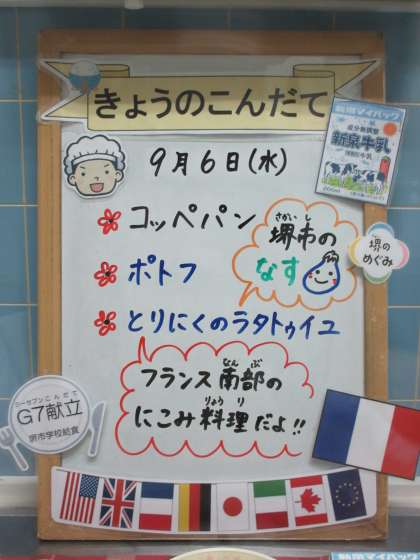 きょうのこんだて
9月6日(水)
新泉牛乳
コッペパン
さかい し
堺市の
なす
堺の
めぐみ
ポトフ
とりにくのラタトゥイユ
なん ぶ
フランス南部の
りょう り
にこみ料理だよ!!
ジーセブンこんだて
G7献立
堺市学校給食